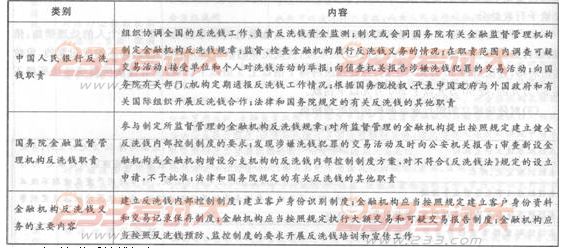 类别
内容
中国人民银行反洗
钱职责
组织协调全国的反洗钱工作、负责反洗钱资金监测;制定或会同国务院有关金融监督管理机构
制定金融机构反洗钱规章;监督、检查金融机构履行反洗钱义务的情况;在职责范围内调查可疑
交易活动;接受单位和个人对洗钱活动的举报;向侦查机关报告涉嫌洗钱犯罪的交易活动;向国
务院有关部门、机构定期通报反洗钱工作情况;根据国务院授权,代表中国政府与外国政府和有
关国际组织开展反洗钱合作;法律和国务院规定的有关反洗钱的其他职责
国务院金融监督管
理机构反洗钱职责
参与制定所监督管理的金融机构反洗钱规章;对所监督管理的金融机构提出按照规定建立健全
反洗钱内部控制制度的要求;发现涉嫌洗钱犯罪的交易活动及时向公安机关报告;审查新设金
融机构或金融机构增设分支机构的反洗钱内部控制制度方案,对不符合《反洗钱法》规定的设立
申请,不予批准;法律和国务院规定的有关反洗钱的其他职责
金融机构反洗钱义
务的主要内容
建立反洗钱内部控制制度;建立客户身份识别制度;金融机构应当按照规定建立客户身份资料
和交易记录保存制度;金融机构应当按照规定执行大额交易和可疑交易报告制度;金融机构应
当按照反洗钱预防、监控制度的要求开展反洗钱培训和宣传工作